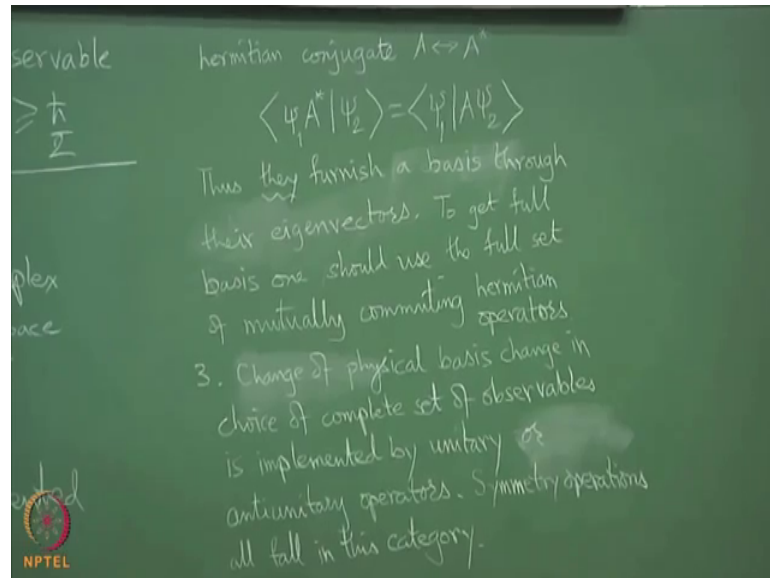 servable
≥ ħ/2
plex
pace
ented
hermitian conjugate A ↔ A*
⟨ψ₁A*|ψ₂⟩ = ⟨ψ₁|Aψ₂⟩
Thus they furnish a basis through
their eigenvectors. To get full
basis one should use the full set
of mutually commuting hermitian
operators
3. Change of physical basis change in
choice of complete set of observables
is implemented by unitary or
antiunitary operators. Symmetry operations
all fall in this category.
NPTEL